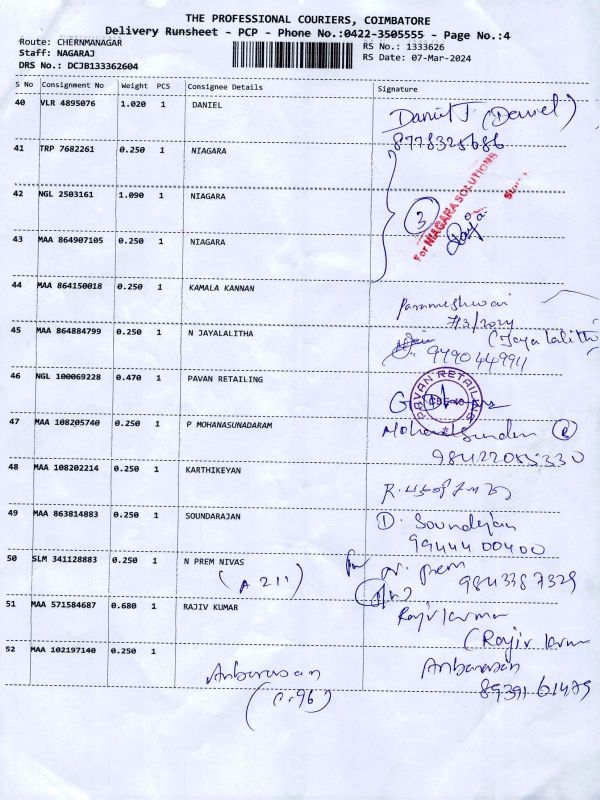 THE PROFESSIONAL COURIERS, COIMBATORE
Delivery Runsheet - PCP - Phone No.:0422-3505555 - Page No.:4
Route: CHERNMANAGAR
Staff: NAGARAJ
DRS No.: DCJB133362604
RS No.: 1333626
RS Date: 07-Mar-2024
S No Consignment No Weight PCS Consignee Details Signature
40 VLR 4895076 1.020 1 DANIEL
Daniel J (Daniel)
8778325686
41 TRP 7682261 0.250 1 NIAGARA
42 NGL 2503161 1.090 1 NIAGARA
3
For NIAGARA SOLUTIONS
43 MAA 864907105 0.250 1 NIAGARA
44 MAA 864150018 0.250 1 KAMALA KANNAN
Parameshwari
7/3/2024
45 MAA 864884799 0.250 1 N JAYALALITHA
(Jayalalitha)
9790449911
46 NGL 100069228 0.470 1 PAVAN RETAILING
PAVAN RETAILING
47 MAA 108205740 0.250 1 P MOHANASUNADARAM
98422055330
48 MAA 108202214 0.250 1 KARTHIKEYAN
49 MAA 863814883 0.250 1 SOUNDARAJAN
D. Soundejan
99444 00400
50 SLM 341128883 0.250 1 N PREM NIVAS
(A 211)
N. Prem
9843387329
51 MAA 571584687 0.680 1 RAJIV KUMAR
52 MAA 102197140 0.250 1
Anbarasan
Anbarasan
89391 61479